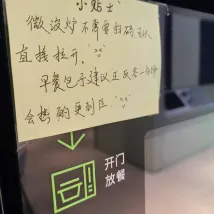 小贴士
微波炉不需要扫码可以
直接拉开。
早餐包子建议正反各一分钟
会热的更到位
开门
放餐